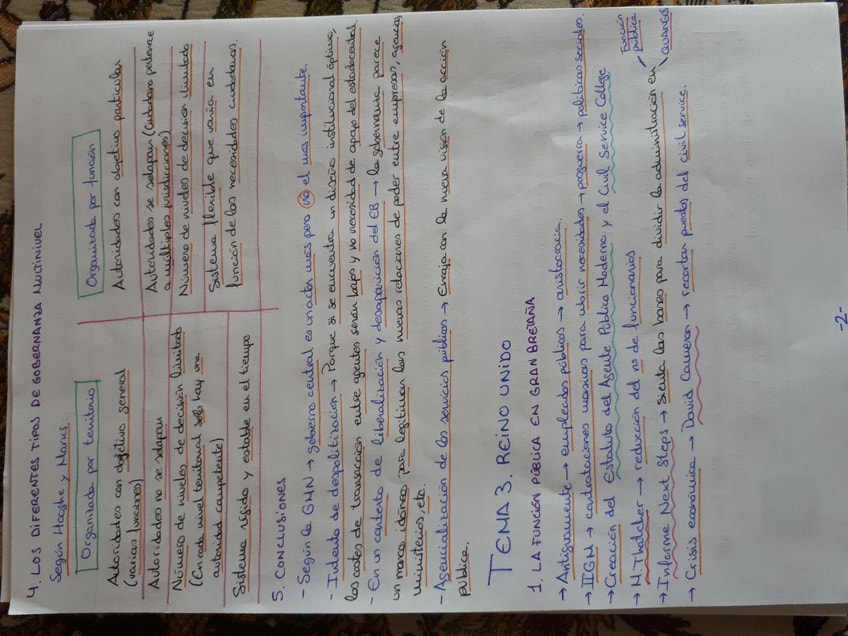 4. LOS DIFERENTES TIPOS DE GOBERNANZA MULTINIVEL
Según Hooghe y Marks.
Organizada por territorio
Autoridades con objetivo general
(varias funciones)
Autoridades no se solapan
Número de niveles de decisión limitado
(En cada nivel territorial solo hay una
autoridad competente)
Sistema rígido y estable en el tiempo
Organizada por función
Autoridades con objetivo particular
Autoridades se solapan (ciudadano pertenece
a múltiples jurisdicciones)
Número de niveles de decisión ilimitado
Sistema flexible que varía en
función de las necesidades ciudadanas.
5. CONCLUSIONES
- Según la GMN → gobierno central es un actor más pero no el más importante.
- Intento de despolitización → Porque si se encuentra un diseño institucional óptimo,
los costes de transacción entre agentes serán bajos y no necesidad de apoyo del estado central
- En un contexto de liberalización y desaparición del EB → la gobernanza parece
un marco idóneo para legitimar las nuevas relaciones de poder entre empresas, agencias,
ministerios, etc.
- Agencialización de los servicios públicos → Encaja con la nueva visión de la acción
pública.
TEMA 3. REINO UNIDO
1. LA FUNCIÓN PÚBLICA EN GRAN BRETAÑA
→ Antiguamente → empleados públicos → aristocracia.
→ IIGM → contrataciones masivas para cubrir necesidades → posguerra → políticas sociales.
→ Creación del Estatuto del Agente Público Moderno y el Civil Service College
→ M. Thatcher → reducción del nº de funcionarios
→ Informe Next Steps → Sienta las bases para dividir la administración en
Función pública
agencias
→ Crisis económica → David Cameron → recortan puestos del civil service.
-2-